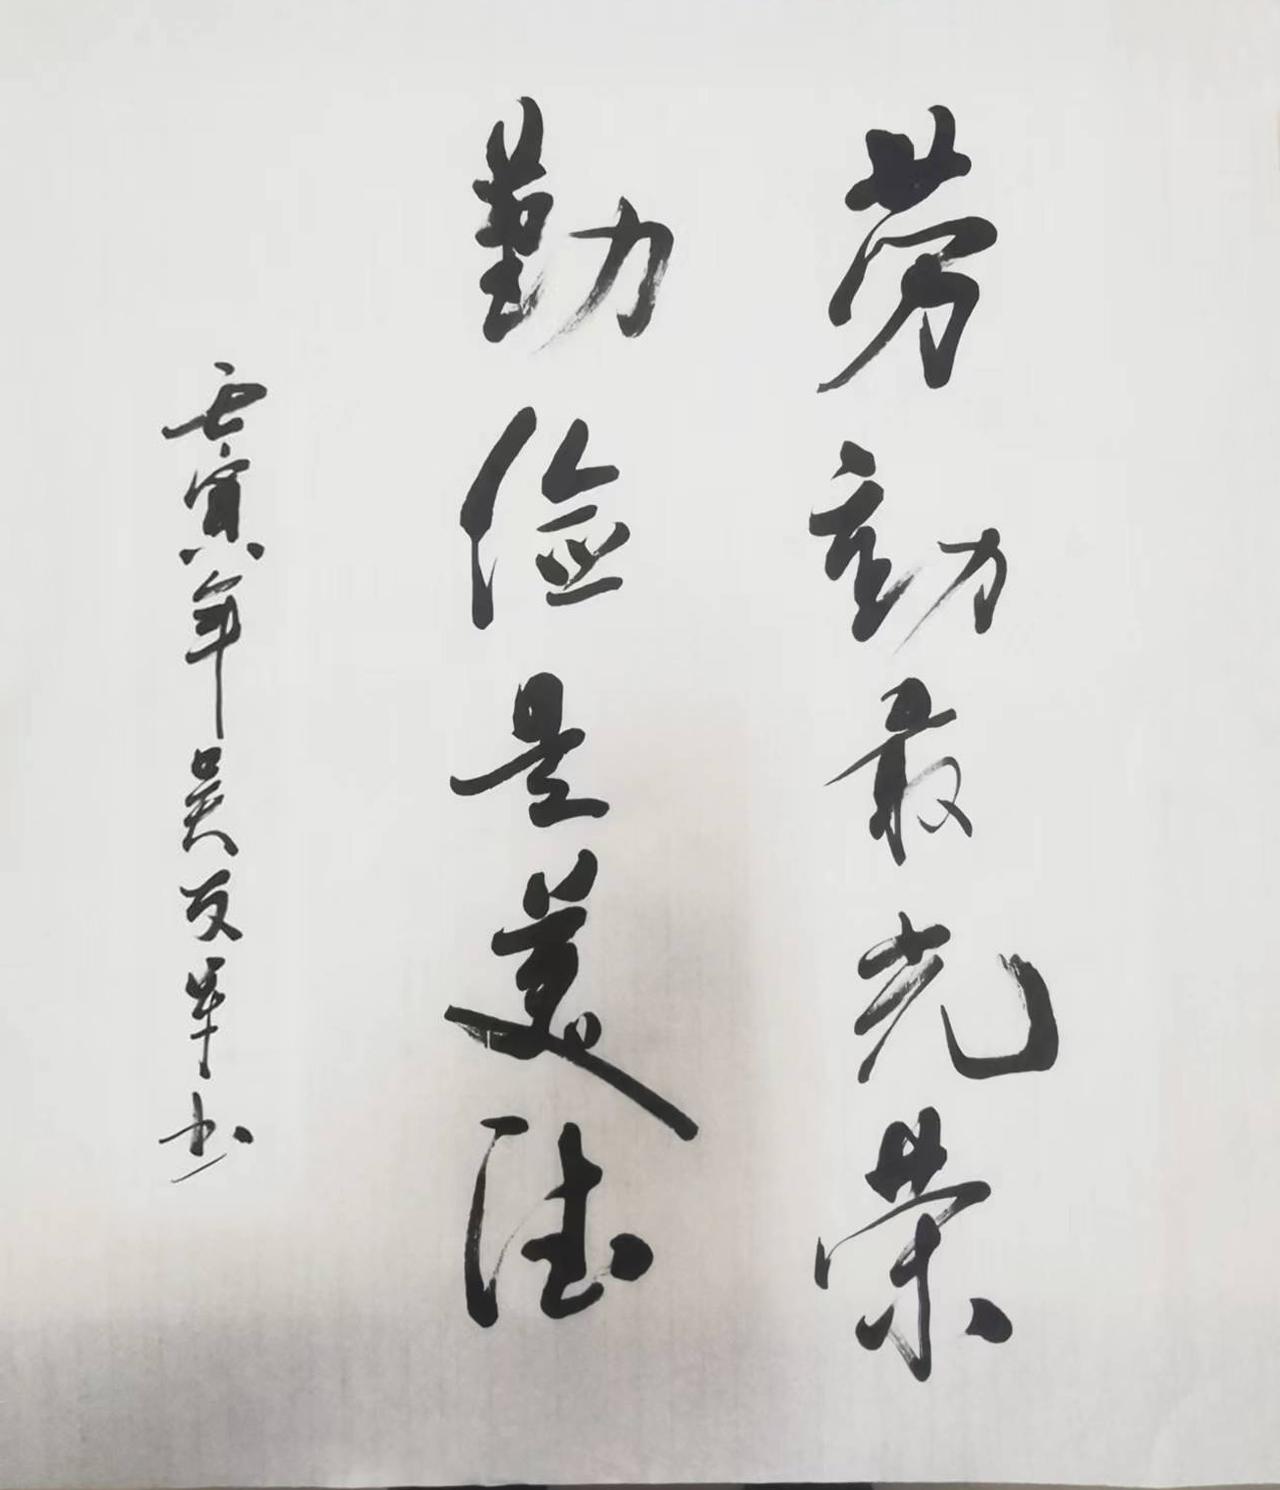 劳動最光荣
勤俭是美德
壬寅年吴友军书